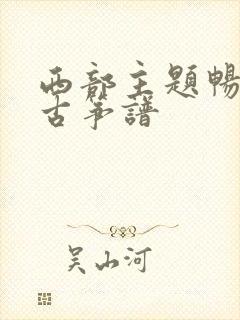 西部主題暢
古筝譜
吴山河